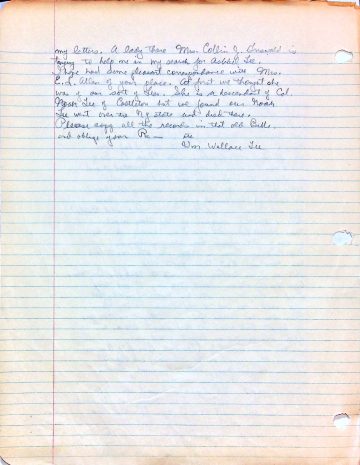 my letters. A lady there Mrs. Collin J. is
trying to help me in my search for Lee.
I have had some pleasant correspondence with Mrs.
E. L. Allen of your place. At first we thought she
was of our sort of Lees. She is a descendent of Col.
Noah Lee of Castleton but we found our Noah
Lee went over the N.Y. state and died there.
Please copy all the records in that old Bible
and oblige your
Wm Wallace Lee